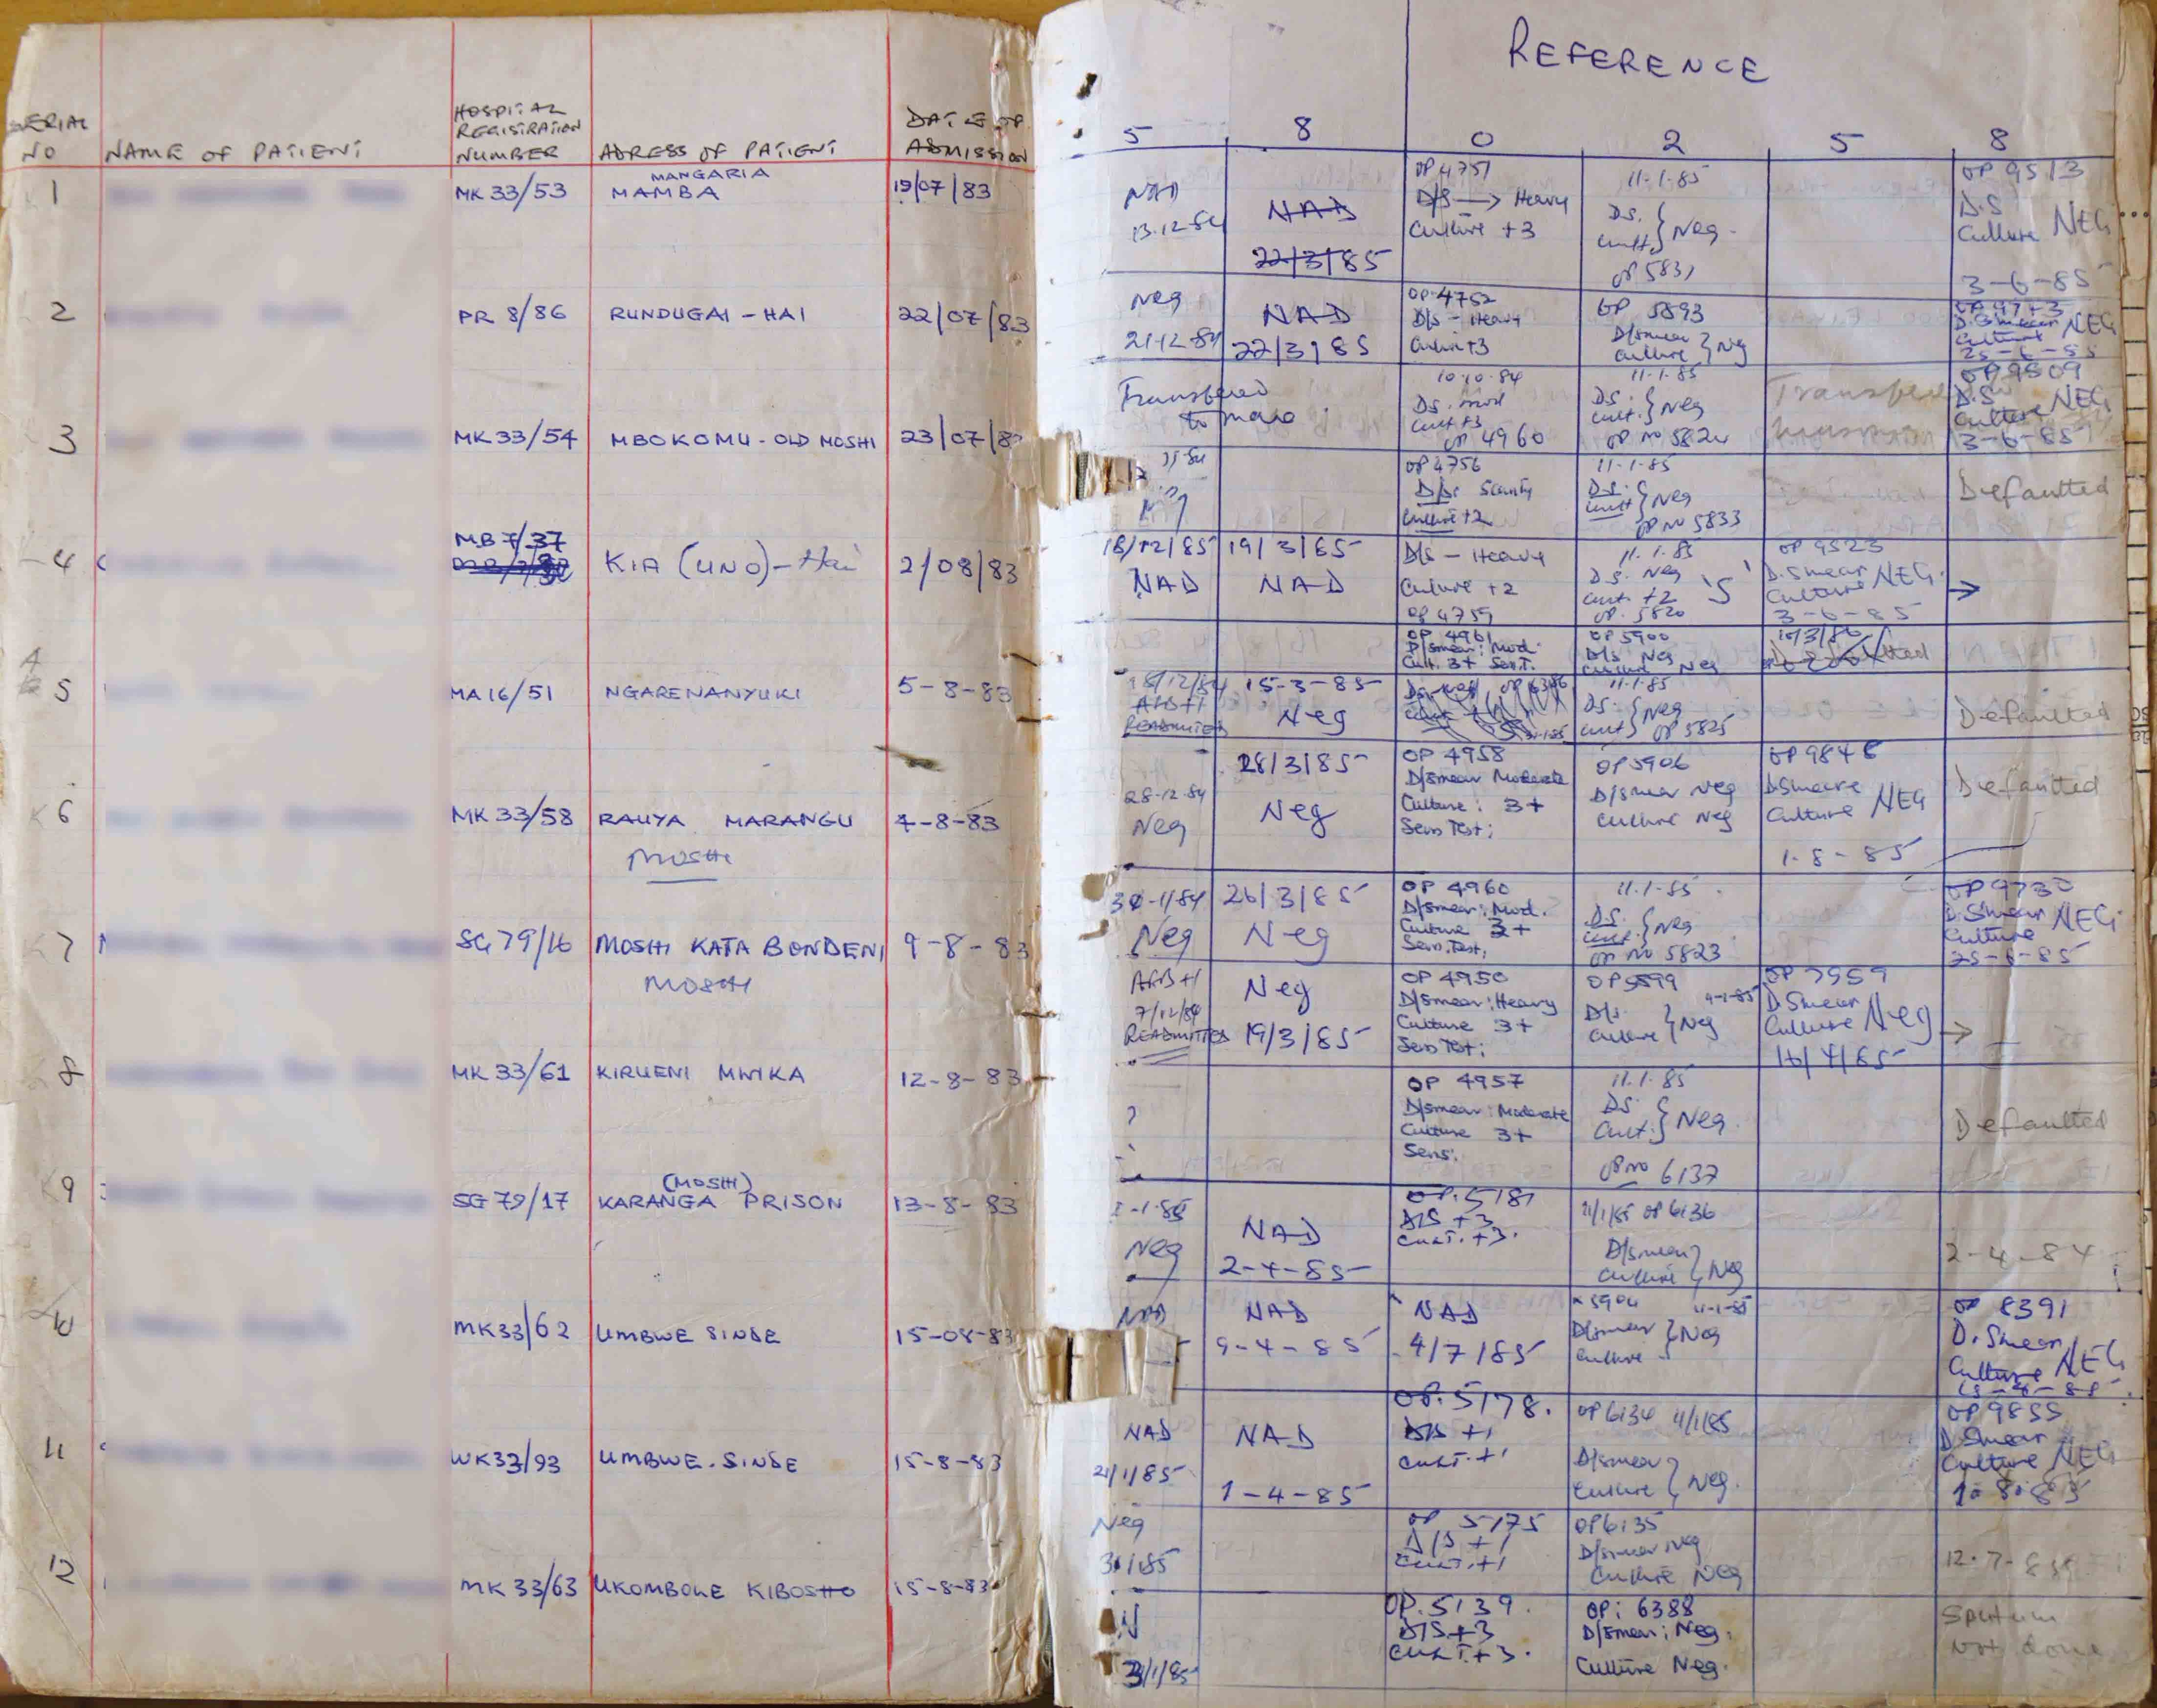 SERIAL NO
NAME OF PATIENT
HOSPITAL REGISTRATION NUMBER
ADRESS OF PATIENT
DATE OF ADMISSION
1 MK 33/53 MAMBA MANGARIA 19/07/83
2 PR 8/86 RUNDUGAI - HAI 22/07/83
3 MK 33/54 MBOKOMU - OLD MOSHI 23/07/83
4 MB 7/37 KIA (UNO) - Hai 2/08/83
5 MA 16/51 NGARENANYUKI 5-8-83
6 MK 33/58 RAUYA MARANGU 4-8-83
MOSHI
7 SG 79/16 MOSHI KATA BONDENI 9-8-83
MOSHI
8 MK 33/61 KIRUENI MWIKA 12-8-83
9 SG 79/17 KARANGA PRISON (MOSHI) 13-8-83
10 MK 33/62 UMBWE SINDE 15-08-83
11 WK 33/93 UMBWE. SINDE 15-8-83
12 MK 33/63 UKOMBONE KIBOSHO 15-8-83
REFERENCE
5 8 0 2 5 8
NAD
13.12.84
NAD
22/3/85
OP 4751
D/S → Heavy
Culture +3
11-1-85
D.S. Cult. } Neg.
OP 5831
OP 9513
D.S
Culture NEG
3-6-85
Neg
21-12-84
NAD
22/3/85
OP 4752
D/S - Heavy
Culture +3
OP 5893
D/smear
Culture } Neg
D. Smear NEG
Culture
25-6-85
Transferred
to
10.10.84
DS. mod
Cult +3
OP 4960
11-1-85
DS.
Cult. } Neg
OP no 5824
OP 9509
D.S
Culture NEG
3-6-85
OP 4756
D/S: Scanty
Culture +2
11-1-85
D.S.
Cult } Neg
OP no 5833
Defaulted
18/12/85
NAD
19/3/85
NAD
D/S - Heavy
Culture +2
OP 4759
11.1.85
D.S. Neg
Cult. +2 'S'
OP. 5820
OP 9523
D. Smear NEG.
Culture
3-6-85
→
OP 4961
D/smear: Mod.
Cult. 3+ Sen.T.
OP 5900
D/S Neg
Culture Neg
AFB+1
READMITTED
15-3-85
Neg
11-1-85
DS.
Cult } Neg
OP 5825
Defaulted
28-12-84
Neg
28/3/85
Neg
OP 4958
D/smear Moderate
Culture: 3+
Sens Test:
OP 5906
D/smear Neg
Culture Neg
OP 9848
D Smeare
Culture NEG
1-8-85
Defaulted
Neg
26/3/85
Neg
OP 4960
D/smear: Mod.
Culture 3+
Sens. Test:
11.1-85
DS.
Cult. } Neg
OP no 5823
OP 9730
D. Smear NEG
Culture
25-6-85
AFB+1
7/12/84
READMITTED
Neg
19/3/85
OP 4950
D/smear: Heavy
Culture 3+
Sens Test:
OP 5899
D/S.
Culture } Neg
OP 7959
D. Smear
Culture Neg
16/4/85
→
?
OP 4957
D/smear: Moderate
Culture 3+
Sens:
11.1.85
DS.
Cult. } Neg.
OP no 6137
Defaulted
Neg
NAD
2-4-85
OP. 5181
D/S +3
CULT. +3.
11/1/85 OP 6136
D/smear
Culture } Neg
2-4-84
NAD
NAD
9-4-85
NAD
4/7/85
5904 11-1-85
D/smear
Culture } Neg
OP 8391
D. Smear
Culture NEG
NAD
21/1/85
NAD
1-4-85
OP. 5178.
D/S +1
CULT. +1
OP 6134 11/1/85
D/smear
Culture } Neg.
OP 9855
D. Smear
Culture NEG
1.8.85
Neg
OP 5175
D/S +1
CULT. +1
OP 6135
D/smear Neg
Culture Neg
OP. 5139.
D/S +3
CULT. +3.
OP: 6388
D/smear: Neg.
Culture Neg.
Sputum
not done